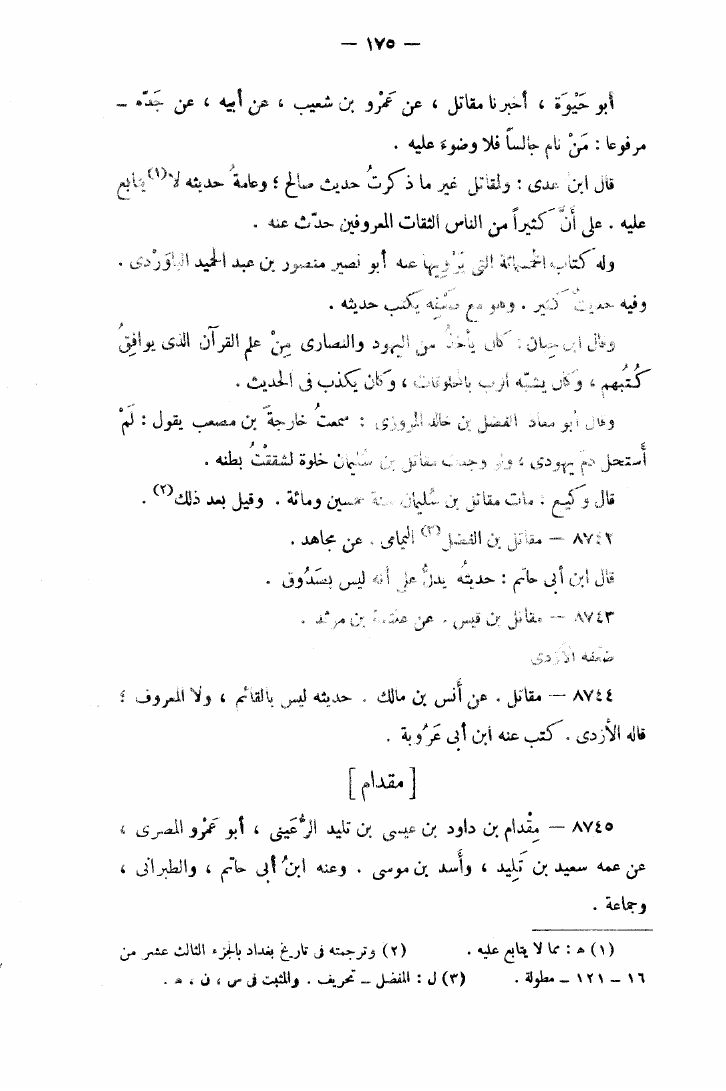 — ١٧٥ —
أبو حَيْوَة ، أخبرنا مقاتل ، عن عَمْرو بن شعيب ، عن أبيه ، عن جَدّه –
مرفوعا : مَنْ نام جالساً فلا وضوءَ عليه .
قال ابنُ عدى : ولمقاتل غير ما ذكرتُ حديث صالح ؛ وعامةُ حديثه لا(١) يتابع
عليه . على أنَّ كثيراً من الناس الثقات المعروفين حدّث عنه .
وله كتاب الخمسمائة التى يَرْويها عنه أبو نصير منصور بن عبد الحميد الباوَرْدى .
وفيه حديثٌ كثير . وهو مع ضَعْفِه يُكتب حديثه .
وقال ابن حبان : كان يأخذُ من اليهود والنصارى مِنْ علم القرآن الذى يوافقُ
كُتُبهم ، وكان يشبّه الرب بالمخلوقات ، وكان يكذب فى الحديث .
وقال أبو معاذ الفضل بن خالد المروزى : سمعتُ خارجةَ بن مصعب يقول : لَمْ
أستحل دمَ يهودى ، ولو وجدت مقاتل بن سُليمان خلوة لشققْتُ بطنه .
قال وَكيع : مات مقاتل بن سُليمان سنة خمسين ومائة . وقيل بعد ذلك(٢) .
٨٧٤٢ – مقاتل بن الفضل(٣) اليمامى . عن مجاهد .
قال ابن أبى حاتم : حديثُه يدلُّ على أنه ليس بصَدُوق .
٨٧٤٣ – مقاتل بن قيس . عن علقمة بن مرثد .
ضعّفه الأزدى
٨٧٤٤ – مقاتل . عن أنس بن مالك . حديثه ليس بالقائم ، ولا المعروف ؛
قاله الأزدى . كتب عنه ابن أبى عَرُوبة .
[ مقدام ]
٨٧٤٥ – مِقْدام بن داود بن عيسى بن تليد الرُّعَينى ، أبو عَمْرو المصرى ،
عن عمه سعيد بن تَلِيد ، وأسد بن موسى . وعنه ابنُ أبى حاتم ، والطبرانى ،
وجماعة .
(١) ه : مما لا يتابع عليه . (٢) وترجمته فى تاريخ بغداد بالجزء الثالث عشر من
١٦ – ١٢١ – مطولة . (٣) ل : المفضل – تحريف . والمثبت فى س ، ن ، ه .